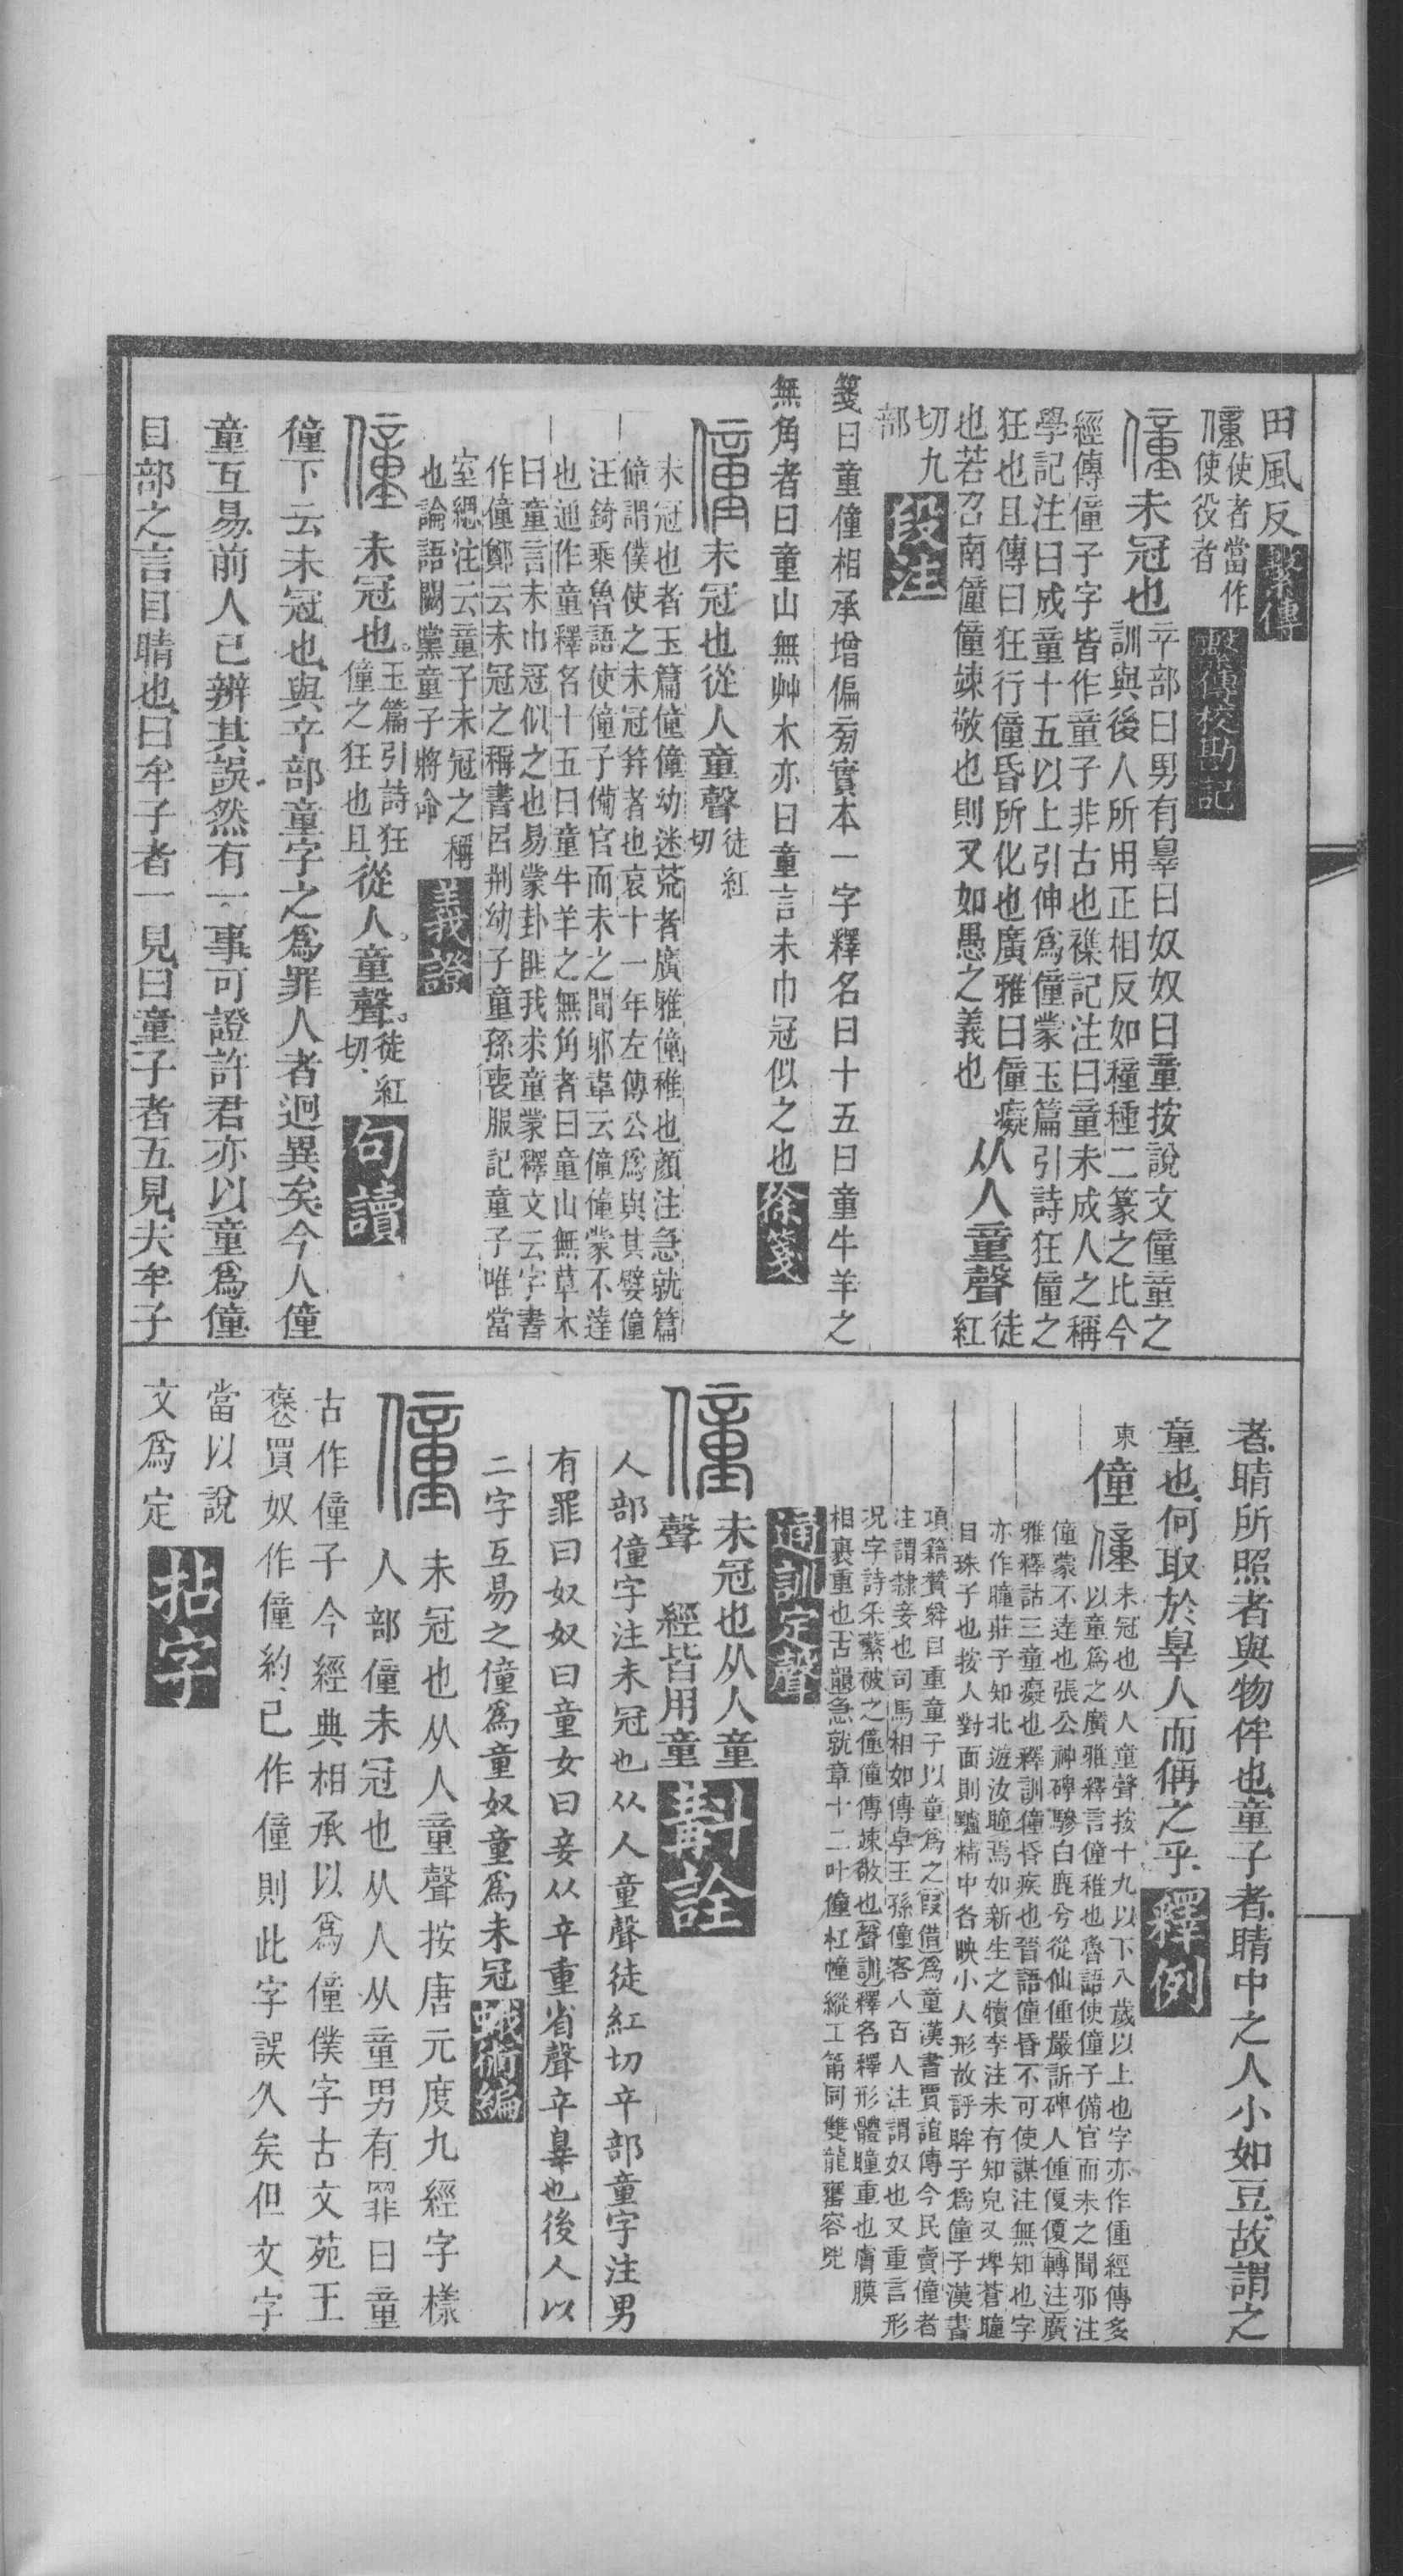 田風反繫傳
僮使者當作
使役者
繫傳校勘記
僮未冠也
䇂部曰男有辠曰奴奴曰童按說文僮童之
訓與後人所用正相反如穜種二篆之比今
經傳僮子字皆作童子非古也襍記注曰童未成人之稱
學記注曰成童十五以上引伸爲僮蒙玉篇引詩狂僮之
狂也且傳曰狂行僮昏所化也廣雅曰僮癡
也若召南僮僮竦敬也則又如愚之義也
从人童聲
徒紅
切九
部
段注
箋曰童僮相承增偏㫄實本一字釋名曰十五曰童牛羊之
無角者曰童山無艸木亦曰童言未巾冠似之也徐箋
僮未冠也從人童聲
徒紅
切
未冠也者玉篇僮僮幼迷荒者廣雅僮稚也顏注急就篇
僮謂僕使之未冠笄者也哀十一年左傳公爲與其嬖僮
汪錡乘魯語使僮子備官而未之聞邪韋云僮僮蒙不達
也通作童釋名十五曰童牛羊之無角者曰童山無草木
曰童言未巾冠似之也易蒙卦匪我求童蒙釋文云字書
作僮鄭云未冠之稱書呂刑幼子童孫喪服記童子唯當
室緦注云童子未冠之稱
也論語闕黨童子將命
義證
僮未冠也
玉篇引詩狂
僮之狂也且
從人童聲
徒紅
切
句讀
僮下云未冠也與䇂部童字之爲罪人者迥異矣今人僮
童互易前人已辨其誤然有一事可證許君亦以童爲僮
目部之言目睛也曰牟子者一見曰童子者五見夫牟子
者睛所照者與物侔也童子者睛中之人小如豆故謂之
童也何取於辠人而偁之乎釋例
東
僮
僮未冠也从人童聲按十九以下八歲以上也字亦作㣫經傳多
以童爲之廣雅釋言僮稚也魯語使僮子備官而未之聞邪注
僮蒙不達也張公神碑驂白鹿兮從仙僮嚴訢碑人㣫優優轉注廣
雅釋詁三童癡也釋訓僮昏疾也晉語僮昏不可使謀注無知也字
亦作瞳莊子知北遊汝瞳焉如新生之犢李注未有知皃又埤蒼瞳
目珠子也按人對面則黸精中各映小人形故評眸子爲僮子漢書
項籍贊舜目重童子以童爲之叚借爲童漢書賈誼傳今民賣僮者
注謂隸妾也司馬相如傳卓王孫僮客八百人注謂奴也又重言形
況字詩采蘩被之僮僮傳竦敬也聲訓釋名釋形體瞳重也膚膜
相裹重也古韻急就章十二叶僮杠幢縱工筩同雙龍罋容兇
通訓定聲
僮未冠也从人童
聲　經皆用童
斠詮
人部僮字注未冠也从人童聲徒紅切䇂部童字注男
有罪曰奴奴曰童女曰妾从䇂重省聲䇂辠也後人以
二字互易之僮爲童奴童爲未冠蛾術編
僮
未冠也从人童聲按唐元度九經字樣
人部僮未冠也从人从童男有罪曰童
古作僮子今經典相承以爲僮僕字古文苑王
褒買奴作僮約已作僮則此字誤久矣但文字
當以說
文爲定
拈字